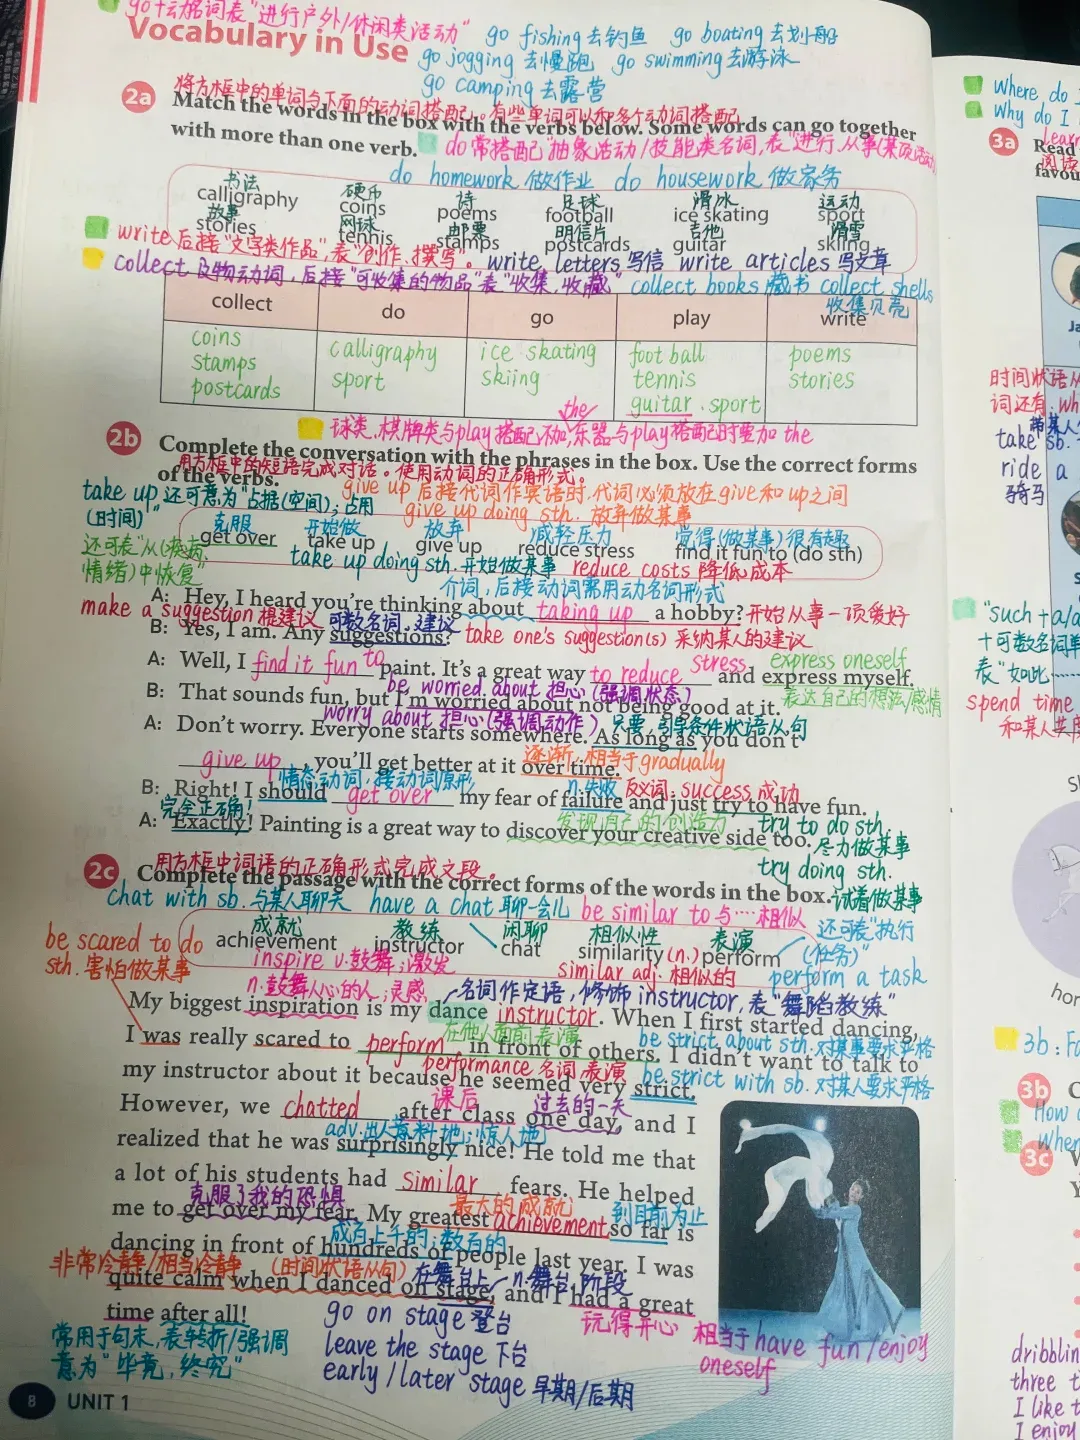 go+活动名词表"进行户外/休闲类活动"
Vocabulary in Use
go fishing 去钓鱼 go boating 去划船
go jogging 去慢跑 go swimming 去游泳
go camping 去露营
将方框中的单词与下面的动词搭配。有些单词可以和多个动词搭配
2a Match the words in the box with the verbs below. Some words can go together
with more than one verb.
do 常搭配"抽象活动/技能类名词,表"进行、从事(某项活动
do homework 做作业 do housework 做家务
书法 硬币 诗 足球 滑冰 运动
calligraphy coins poems football ice skating sport
故事 网球 邮票 明信片 吉他 滑雪
stories tennis stamps postcards guitar skiing
write 后接"文字类作品",表"创作、撰写"。 write letters 写信 write articles 写文章
collect 及物动词,后接"可收集的物品"表"收集,收藏" collect books 藏书 collect shells
收集贝壳
collect do go play write
coins calligraphy ice skating football poems
stamps sport skiing tennis stories
postcards guitar、sport
the
球类、棋牌类与play搭配不加,乐器与play搭配时要加 the
2b Complete the conversation with the phrases in the box. Use the correct forms
of the verbs.
用方框中的短语完成对话。使用动词的正确形式。
give up 后接代词作宾语时,代词必须放在give和up之间
take up 还可意为"占据(空间);占用
(时间)"
give up doing sth. 放弃做某事
克服 开始做 放弃 减轻压力 觉得(做某事)很有趣
get over take up give up reduce stress find it fun to (do sth)
还可表"从(疾病、
情绪)中恢复"
take up doing sth. 开始做某事 reduce costs 降低成本
介词,后接动词需用动名词形式
A: Hey, I heard you're thinking about taking up a hobby? 开始从事一项爱好
make a suggestion 提建议 可数名词,建议
B: Yes, I am. Any suggestions? take one's suggestion(s) 采纳某人的建议
A: Well, I find it fun to paint. It's a great way to reduce stress and express myself.
express oneself
表达自己的想法/感情
be worried about 担心(强调状态)
B: That sounds fun, but I'm worried about not being good at it.
worry about 担心(强调动作) 只要,引导条件状语从句
A: Don't worry. Everyone starts somewhere. As long as you don't
give up, you'll get better at it over time.
逐渐,相当于gradually
情态动词,接动词原形 n.失败 反义词:success 成功
B: Right! I should get over my fear of failure and just try to have fun.
完全正确! 发现自己的创造力 try to do sth.
A: Exactly! Painting is a great way to discover your creative side too.
尽力做某事
try doing sth.
试着做某事
用方框中词语的正确形式完成文段。
2c Complete the passage with the correct forms of the words in the box.
chat with sb. 与某人聊天 have a chat 聊一会儿 be similar to 与…相似
成就 教练 闲聊 相似性 表演
achievement instructor chat similarity (n.) perform
还可表"执行
(任务)"
perform a task
be scared to do
sth. 害怕做某事
inspire v.鼓舞;激发 similar adj.相似的
n.鼓舞人心的人;灵感 名词作定语,修饰 instructor,表"舞蹈教练"
My biggest inspiration is my dance instructor. When I first started dancing,
在他人面前表演 be strict about sth. 对某事要求严格
I was really scared to perform in front of others. I didn't want to talk to
performance 名词 表演 be strict with sb. 对某人要求严格
my instructor about it because he seemed very strict.
课后 过去的一天
However, we chatted after class one day, and I
adv.出人意料地;惊人地
realized that he was surprisingly nice! He told me that
a lot of his students had similar fears. He helped
克服了我的恐惧 最大的成就 到目前为止
me to get over my fear. My greatest achievement so far is
成百上千的;数百的
dancing in front of hundreds of people last year. I was
非常冷静/相当冷静 (时间状语从句) 在舞台上 n.舞台,阶段
quite calm when I danced on stage, and I had a great
time after all!
玩得开心 相当于have fun/enjoy
oneself
常用于句末,表转折/强调
意为"毕竟,终究"
go on stage 登台
leave the stage 下台
early/later stage 早期/后期
8 UNIT 1
Where do I
Why do I
3a Read
favou
时间状语从
词还有:wh
take sb.
ride a
骑马
"such+a/a
+可数名词单
表"如此……
spend time
和某人共度
3b:Fo
3b
How
When
3c
dribblin
three t
I like t
I enjoy